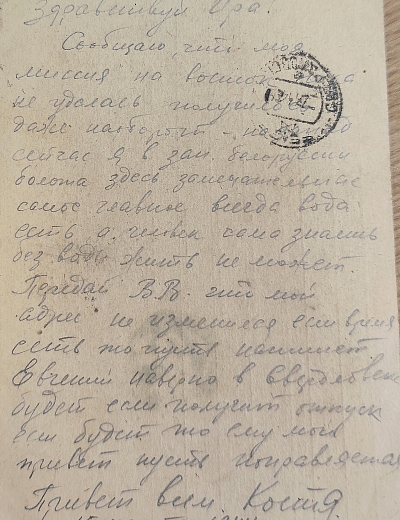 Здравствуй Ира.
Сообщаю, что моя
миссия на восток
не удалась получилось
даже наоборот -
сейчас я в зап. белоруссии
болота здесь замечательные
самое главное всегда вода
есть а человек сама знаешь
без воды жить не может.
Передай В.В. что мой
адрес не изменился если время
есть то пусть напишет
Евгений наверно в Свердловске
будет если получит отпуск
если будет то ему мой
привет пусть поправляется
Привет всем. Костя